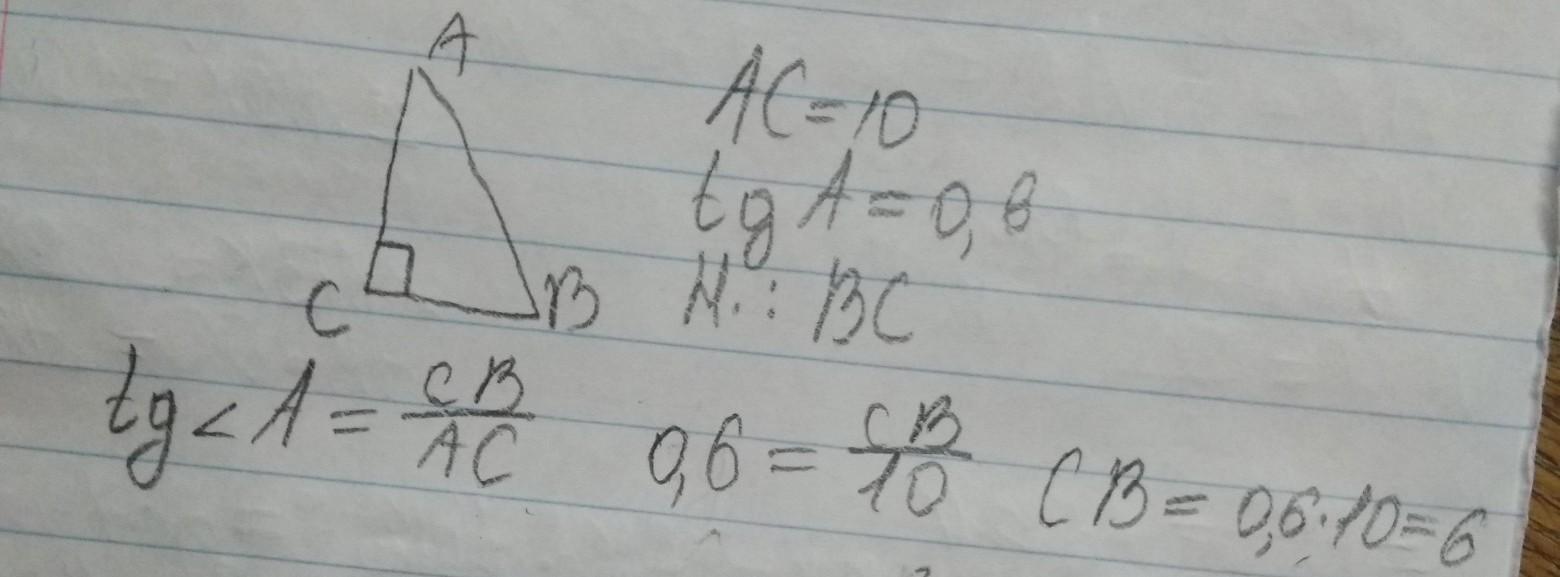 A
AC=10
tg A = 0,6
C
B
Н.: BC
tg < A = CB/AC 0,6 = CB/10 CB = 0,6·10=6